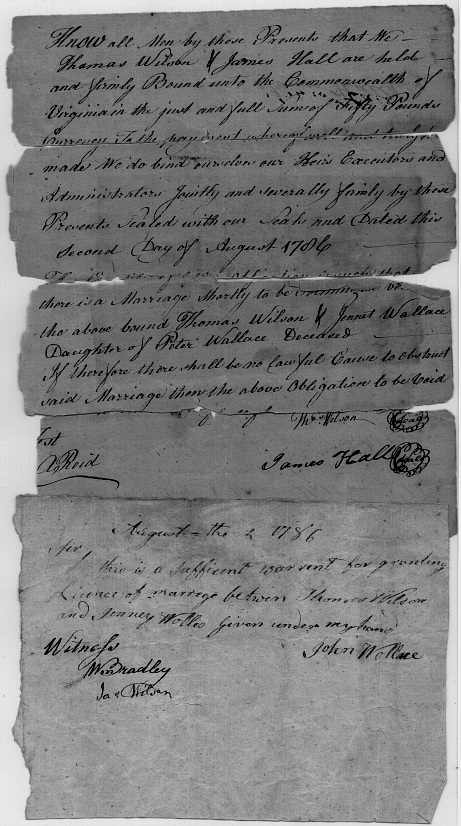 Know all Men by these Presents that We
Thomas Wilson & James Hall are held
and firmly Bound unto the Commonwealth of
Virginia in the just and full Sum of Fifty Pounds
Currency To the payment whereof well and truly
made We do bind ourselves our Heirs Executors and
Administrators Jointly and severally firmly by these
Presents Sealed with our Seals and Dated this
Second Day of August 1786
such that
there is a Marriage Shortly to be
the above bound Thomas Wilson & Janet Wallace
Daughter of Peter Wallace Deceased
If therefore there shall be no lawful Cause to obstruct
said Marriage then the above Obligation to be Void
Thos Wilson Seal
Test
A Reid
James Hall Seal
August the 2 1786
Sir,
this is a suffient warrent for granting
Licence of marrege betwen Thomas Wilson
and Jenney Wolles Given under my hand
Witness
John Wallace
Wm Bradley
Jas Wilson